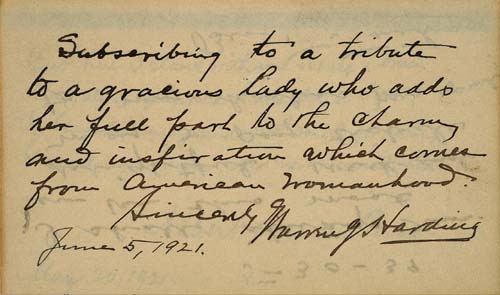 Subscribing to a tribute
to a gracious lady who adds
her full part to the charm
and inspiration which comes
from American Womanhood.
Sincerely
Warren G Harding
June 5, 1921.